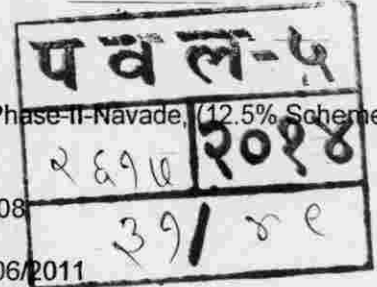 पवल-५
Phase-II-Navade, (12.5% Scheme
२६१७ २०१४
08
३१/४९
06/2011